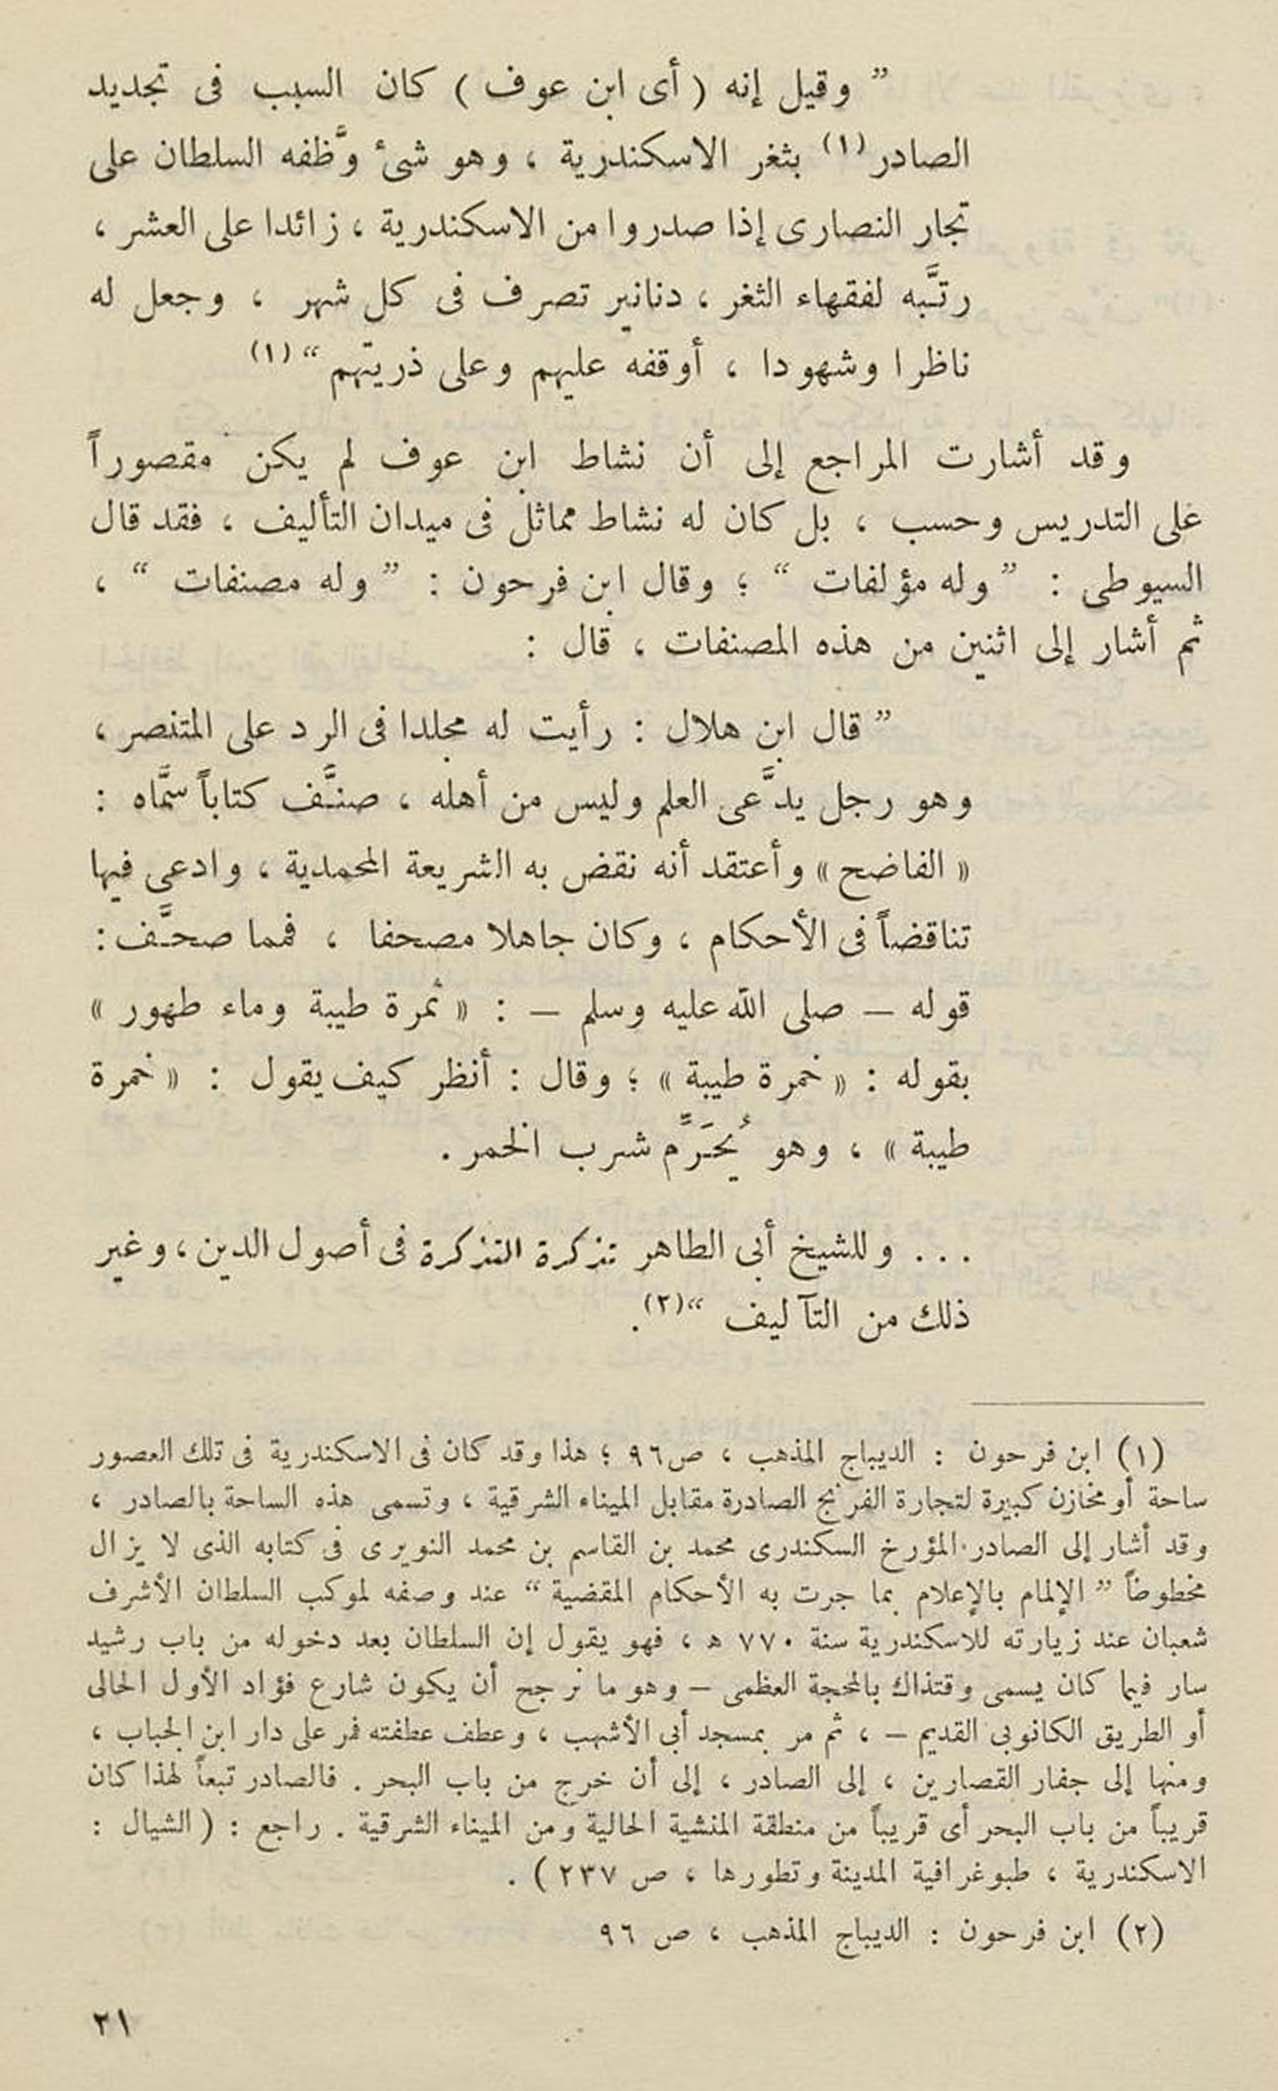 ” وقيل إنه ( أى ابن عوف ) كان السبب فى تجديد
الصادر (١) بثغر الاسكندرية ، وهو شىء وظَّفه السلطان على
تجار النصارى إذا صدروا من الاسكندرية ، زائدا على العشر ،
رتَّبه لفقهاء الثغر ، دنانير تصرف فى كل شهر ، وجعل له
ناظرا وشهودا ، أوقفه عليهم وعلى ذريتهم “ (١)
وقد أشارت المراجع إلى أن نشاط ابن عوف لم يكن مقصوراً
على التدريس وحسب ، بل كان له نشاط مماثل فى ميدان التأليف ، فقد قال
السيوطى : ” وله مؤلفات “ ؛ وقال ابن فرحون : ” وله مصنفات “ ،
ثم أشار إلى اثنين من هذه المصنفات ، قال :
” قال ابن هلال : رأيت له مجلدا فى الرد على المتنصر ،
وهو رجل يدَّعى العلم وليس من أهله ، صنَّف كتاباً سمَّاه :
« الفاضح » وأعتقد أنه نقض به الشريعة المحمدية ، وادعى فيها
تناقضاً فى الأحكام ، وكان جاهلا مصحفا ، فمما صحَّف :
قوله — صلى الله عليه وسلم — : « ثمرة طيبة وماء طهور »
بقوله : « خمرة طيبة » ؛ وقال : أنظر كيف يقول : « خمرة
طيبة » ، وهو يُحَرِّم شرب الخمر .
... وللشيخ أبى الطاهر تذكرة التذكرة فى أصول الدين ، وغير
ذلك من التآليف “ (٢).
(١) ابن فرحون : الديباج المذهب ، ص ٩٦ ؛ هذا وقد كان فى الاسكندرية فى تلك العصور
ساحة أو مخازن كبيرة لتجارة الفرنج الصادرة مقابل الميناء الشرقية ، وتسمى هذه الساحة بالصادر ،
وقد أشار إلى الصادر المؤرخ السكندرى محمد بن القاسم بن محمد النويرى فى كتابه الذى لا يزال
مخطوطاً ” الإلمام بالإعلام بما جرت به الأحكام المقضية “ عند وصفه لموكب السلطان الأشرف
شعبان عند زيارته للاسكندرية سنة ٧٧٠ ه ، فهو يقول إن السلطان بعد دخوله من باب رشيد
سار فيما كان يسمى وقتذاك بالمحجة العظمى — وهو ما نرجح أن يكون شارع فؤاد الأول الحالى
أو الطريق الكانوبى القديم — ، ثم مر بمسجد أبى الأشهب ، وعطف عطفته فمر على دار ابن الجباب ،
ومنها إلى جفار القصارين ، إلى الصادر ، إلى أن خرج من باب البحر . فالصادر تبعاً لهذا كان
قريباً من باب البحر أى قريباً من منطقة المنشية الحالية ومن الميناء الشرقية . راجع : ( الشيال :
الاسكندرية ، طبوغرافية المدينة وتطورها ، ص ٢٣٧ ) .
(٢) ابن فرحون : الديباج المذهب ، ص ٩٦
٢١